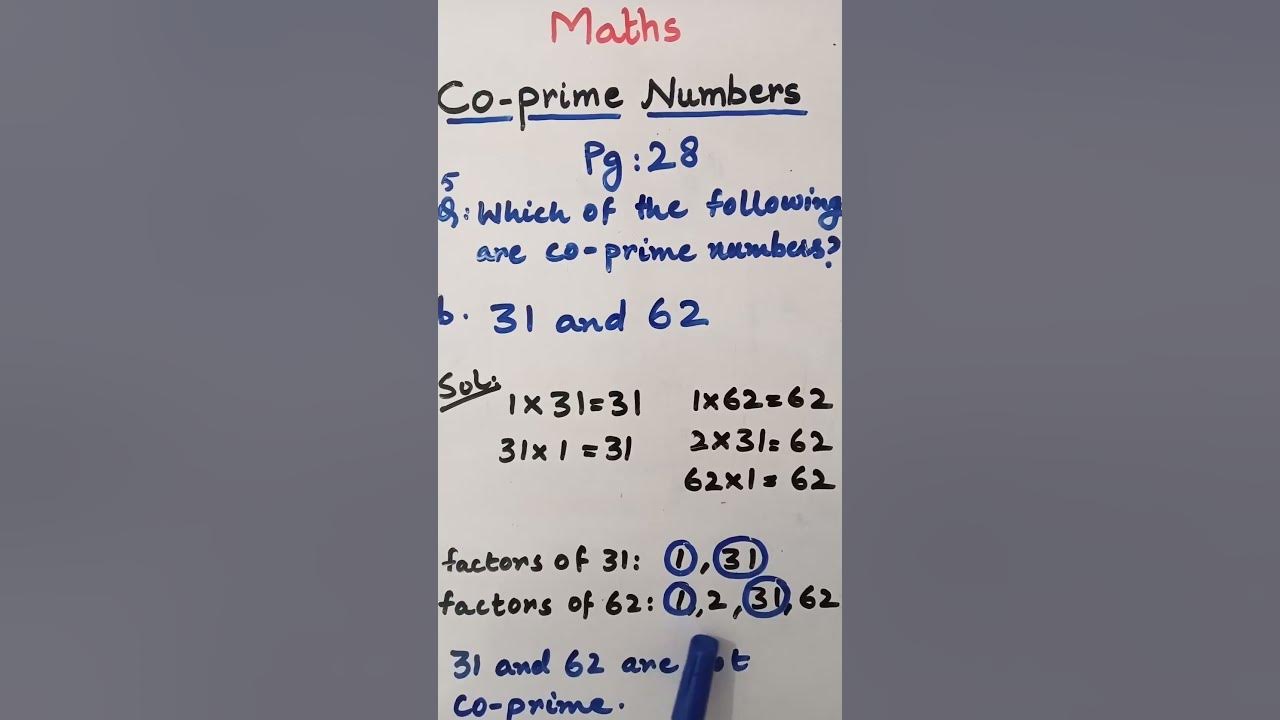 Maths
Co-prime Numbers
Pg: 28
5
Q: Which of the following
are co-prime numbers?
b. 31 and 62
Sol:
1 × 31 = 31 1 × 62 = 62
31 × 1 = 31 2 × 31 = 62
62 × 1 = 62
factors of 31: 1, 31
factors of 62: 1, 2, 31, 62
31 and 62 are
co-prime.